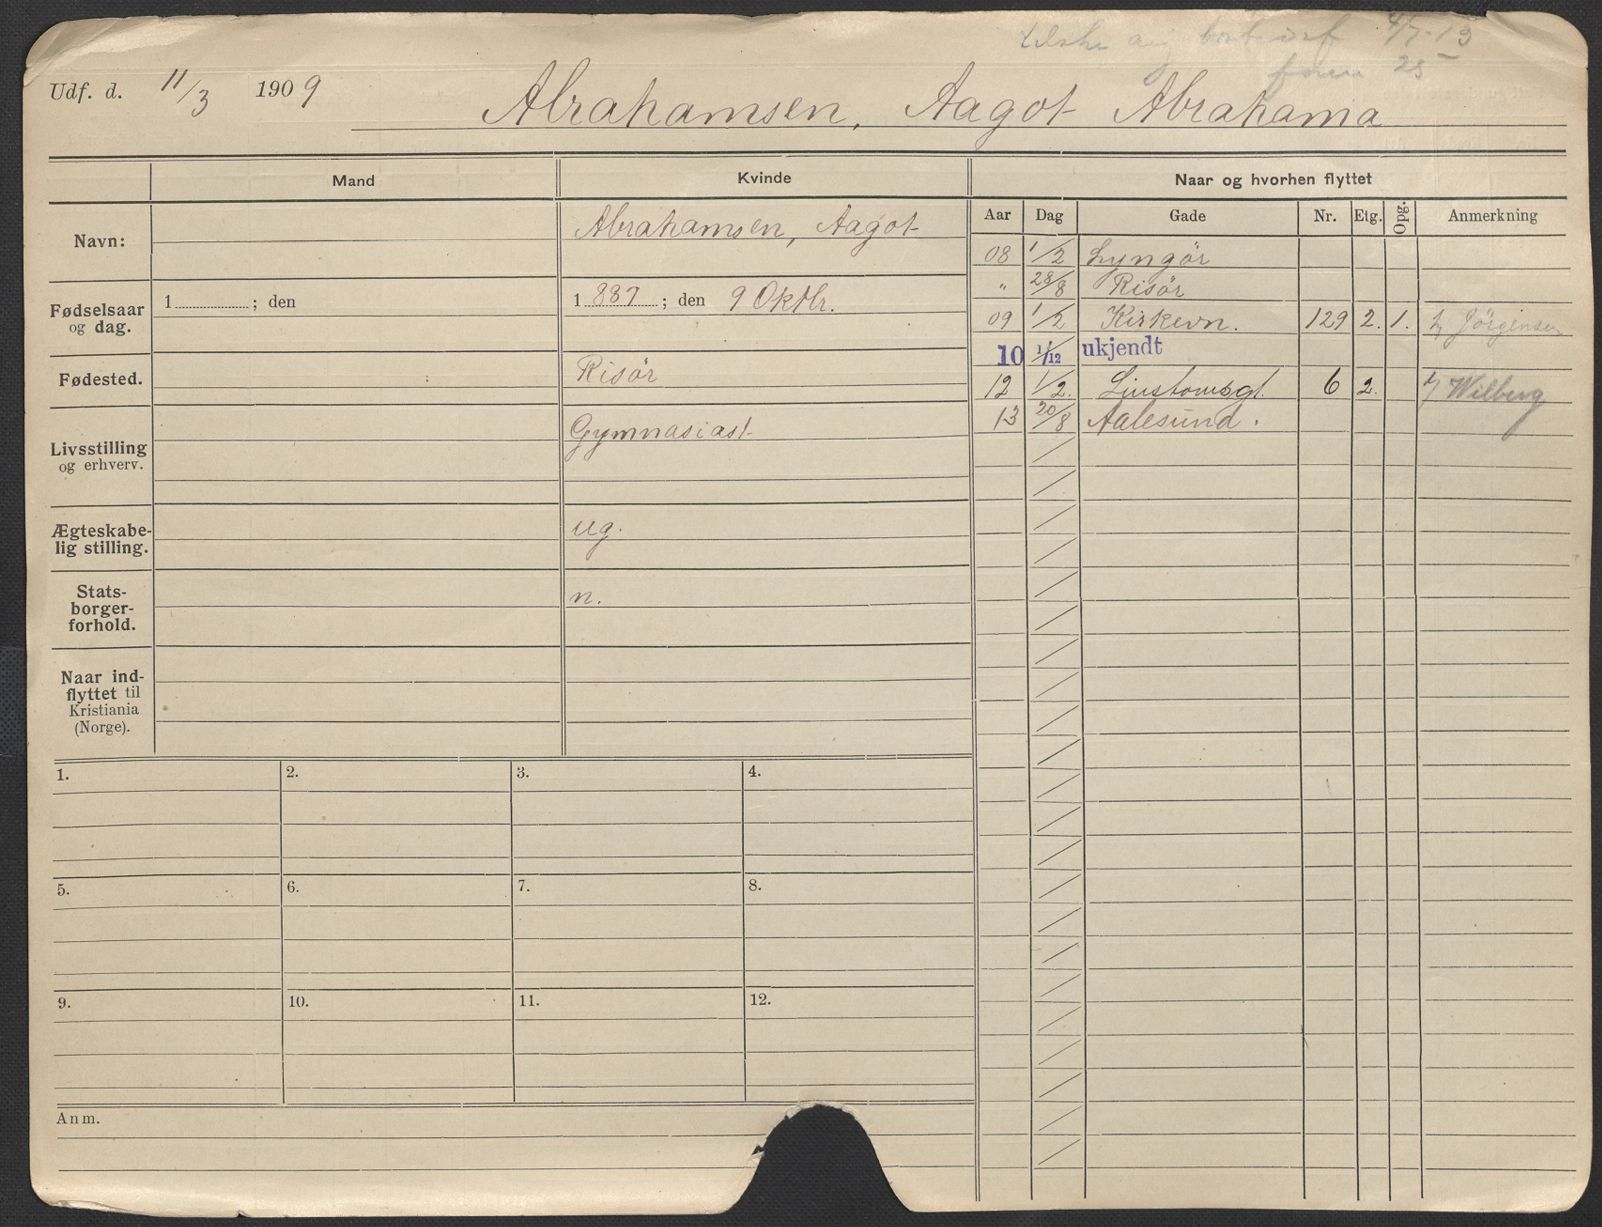 4/7-13
25
Udf. d. 11/3 1909 Abrahamsen, Aagot Abrahama
Mand Kvinde Naar og hvorhen flyttet
Aar Dag Gade Nr. Etg. Opg. Anmerkning
Navn: Abrahamsen, Aagot
Fødselsaar og dag. 1 ; den 1 887 ; den 9 Oktbr.
Fødested. Risör
Livsstilling og erhverv. Gymnasiast
Ægteskabe-
lig stilling. ug.
Stats-
borger-
forhold. n.
Naar ind-
flyttet til
Kristiania
(Norge).
08 1/2 Lyngör
" 28/8 Risör
09 1/2 Kirkevn. 129 2. 1. Jörgensen
10 1/12 ukjendt
12 1/2. Linstowsgt. 6 2. Wilberg
13 20/8 Aalesund.
1. 2. 3. 4.
5. 6. 7. 8.
9. 10. 11. 12.
Anm.